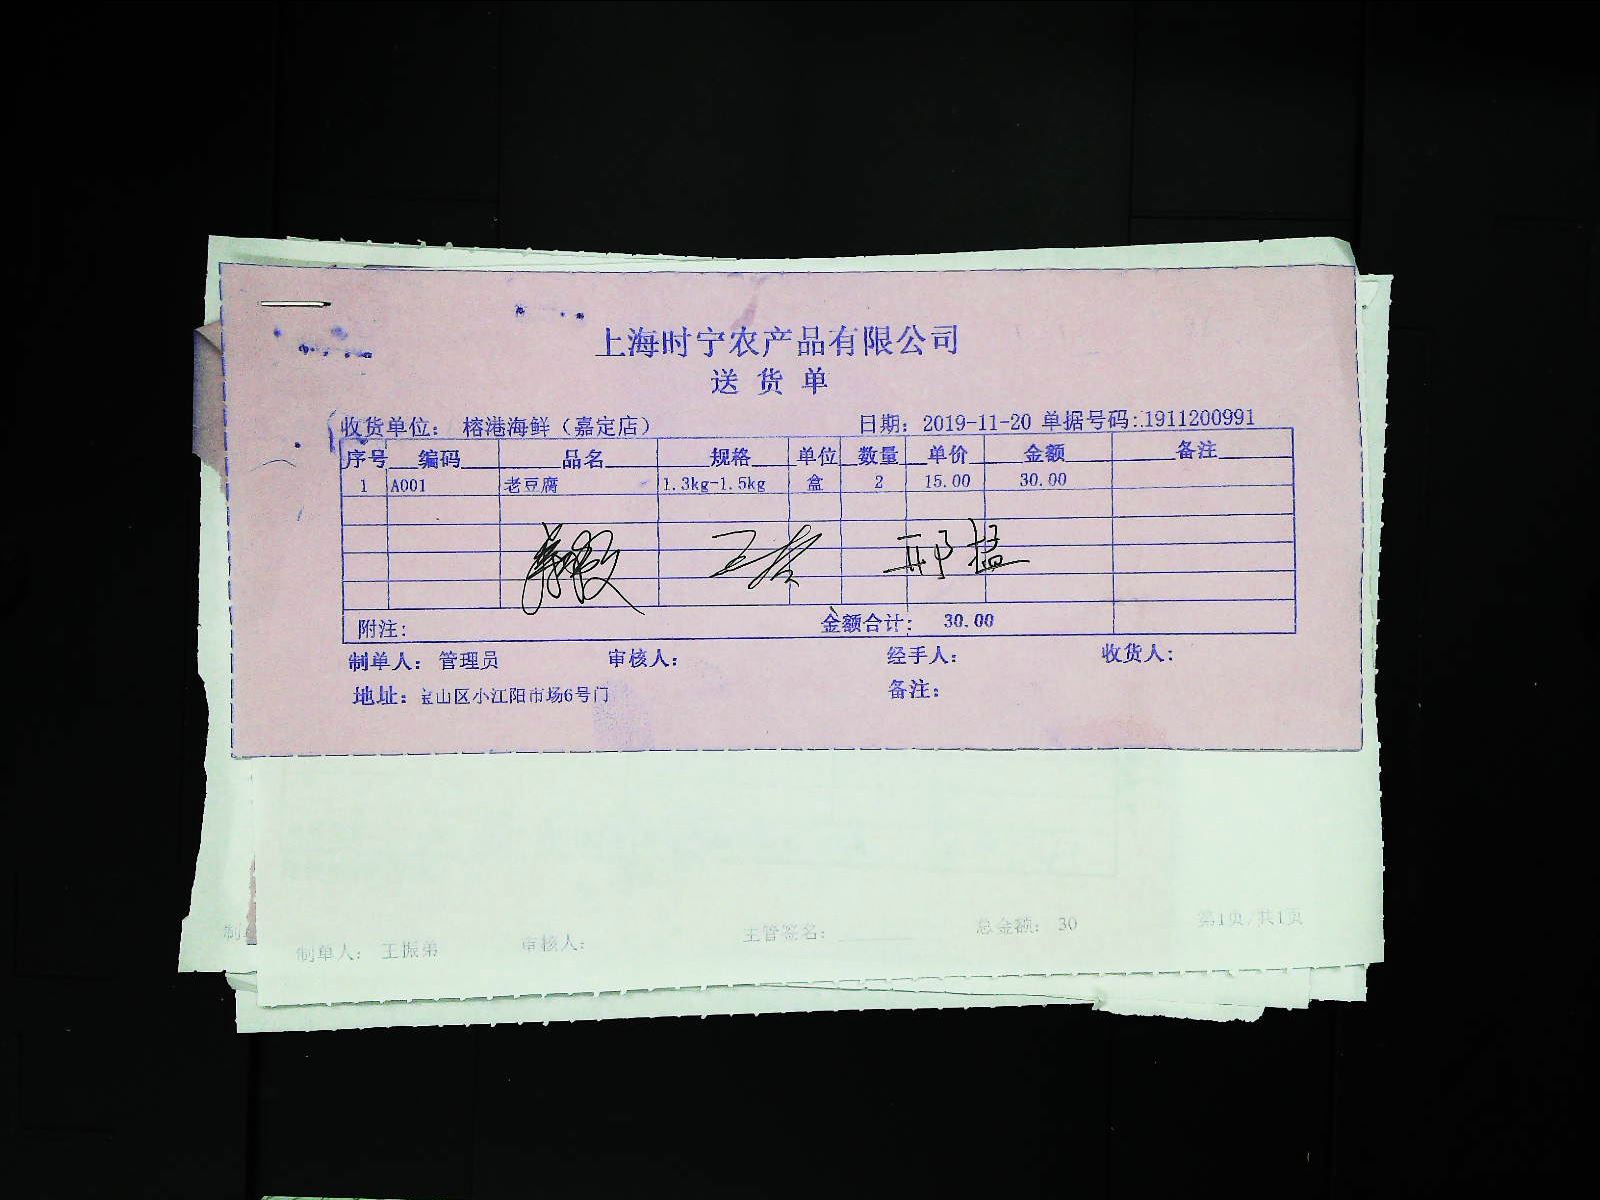 上海时宁农产品有限公司
送货单
收货单位: 榕港海鲜(嘉定店) 日期: 2019-11-20 单据号码: 1911200991
序号 编码 品名 规格 单位 数量 单价 金额 备注
1 A001 老豆腐 1.3kg-1.5kg 盒 2 15.00 30.00
附注: 金额合计: 30.00
制单人: 管理员 审核人: 经手人: 收货人:
地址: 宝山区小江阳市场6号门 备注:
制单人: 王振弟 审核人: 主管签名: 总金额: 30 第1页/共1页